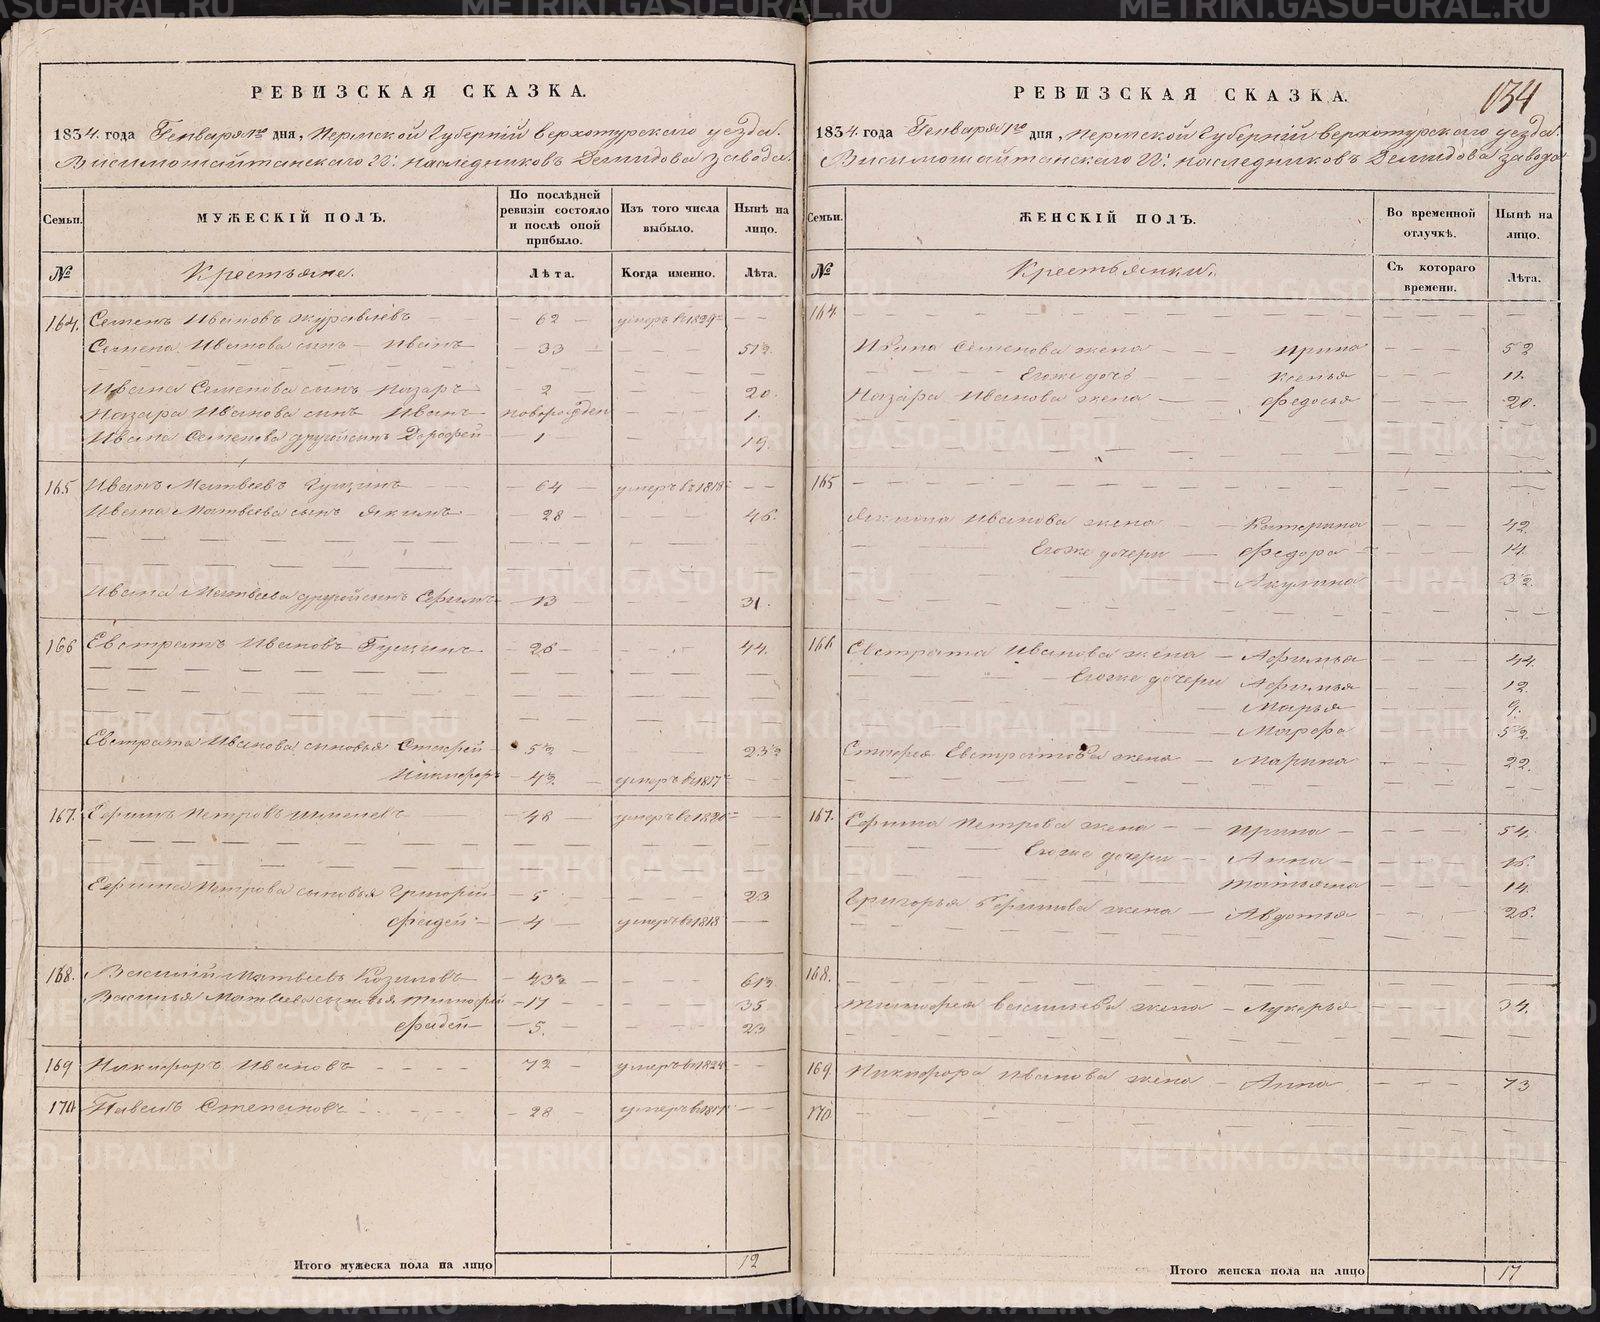 134
РЕВИЗСКАЯ СКАЗКА.
1834. года Генваря 1го дня, Пермской Губернiи Верхотурскаго уезда.
Висимошайтанскаго Гг. наследниковъ Демидова завода.
Семьи. МУЖЕСКIЙ ПОЛЪ. По послѣдней ревизiи состояло и послѣ оной прибыло. Изъ того числа выбыло. Нынѣ на лицо.
№ Крестьяне. Лѣта. Когда именно. Лѣта.
164. Семенъ Ивановъ Журавлевъ 62 умеръ в 1829
Семена Иванова сынъ Иванъ 33 51½
Ивана Семенова сынъ Назаръ 2 20.
Назара Иванова сынъ Иванъ новорожден 1.
Ивана Семенова другой сынъ Дорофей 1 19.
165 Иванъ Матвеевъ Гущинъ 64 умеръ въ 1818
Ивана Матвеева сынъ Якимъ 28 46.
Ивана Матвеева другой сынъ Ефимъ 13 31.
166 Евстратъ Ивановъ Гущинъ 26 44.
Евстрата Иванова сыновья Стафей 5½ 23½
Никифоръ 4½ умеръ в 1817
167. Ефимъ Петровъ 48 умеръ в 1820
Ефима Петрова сыновья Григорiй 5 23
Фадей 4 умеръ в 1818
168. Василiй Матвеевъ Козиловъ 43½ 61½
Василья Матвеева сыновья Тимофей 17 35
Фадей 5. 23
169 Никифоръ Ивановъ 72 умеръ в 1824
170 Павелъ Степановъ 28 умеръ в 1817
Итого мужеска пола на лицо 12
РЕВИЗСКАЯ СКАЗКА.
1834. года Генваря 1го дня, Пермской Губернiи Верхотурскаго уезда.
Висимошайтанскаго Гг. наследниковъ Демидова завода
Семьи. ЖЕНСКIЙ ПОЛЪ. Во временной отлучкѣ. Нынѣ на лицо.
№ Крестьянки. Съ котораго времени. Лѣта.
164.
Ивана Семенова жена Ирина 52
Егоже дочь Ксенья 11.
Назара Иванова жена Федосья 20.
165
Якима Иванова жена Катерина 42
Егоже дочери Федора 14.
Акулина 3½
166 Евстрата Иванова жена Афимья 44
Егоже дочери Афимья 12
Марья 9.
Марфа 5½
Стафея Евстратова жена Марина 22.
167. Ефима Петрова жена Ирина 54.
Егоже дочери Анна 16.
Татьяна 14.
Григорья Ефимова жена Авдотья 26.
168.
Тимофея Васильева жена Лукерья 34.
169 Никифора Иванова жена Анна 73
170
Итого женска пола на лицо 17
METRIKI.GASO-URAL.RU